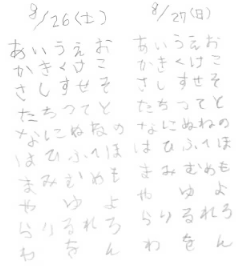 8/26(土)
あいうえお
かきくけこ
さしすせそ
たちつてと
なにぬねの
はひふへほ
まみむめも
や ゆ よ
らりるれろ
わ を ん
8/27(日)
あいうえお
かきくけこ
さしすせそ
たちつてと
なにぬねの
はひふへほ
まみむめも
や ゆ よ
らりるれろ
わ を ん